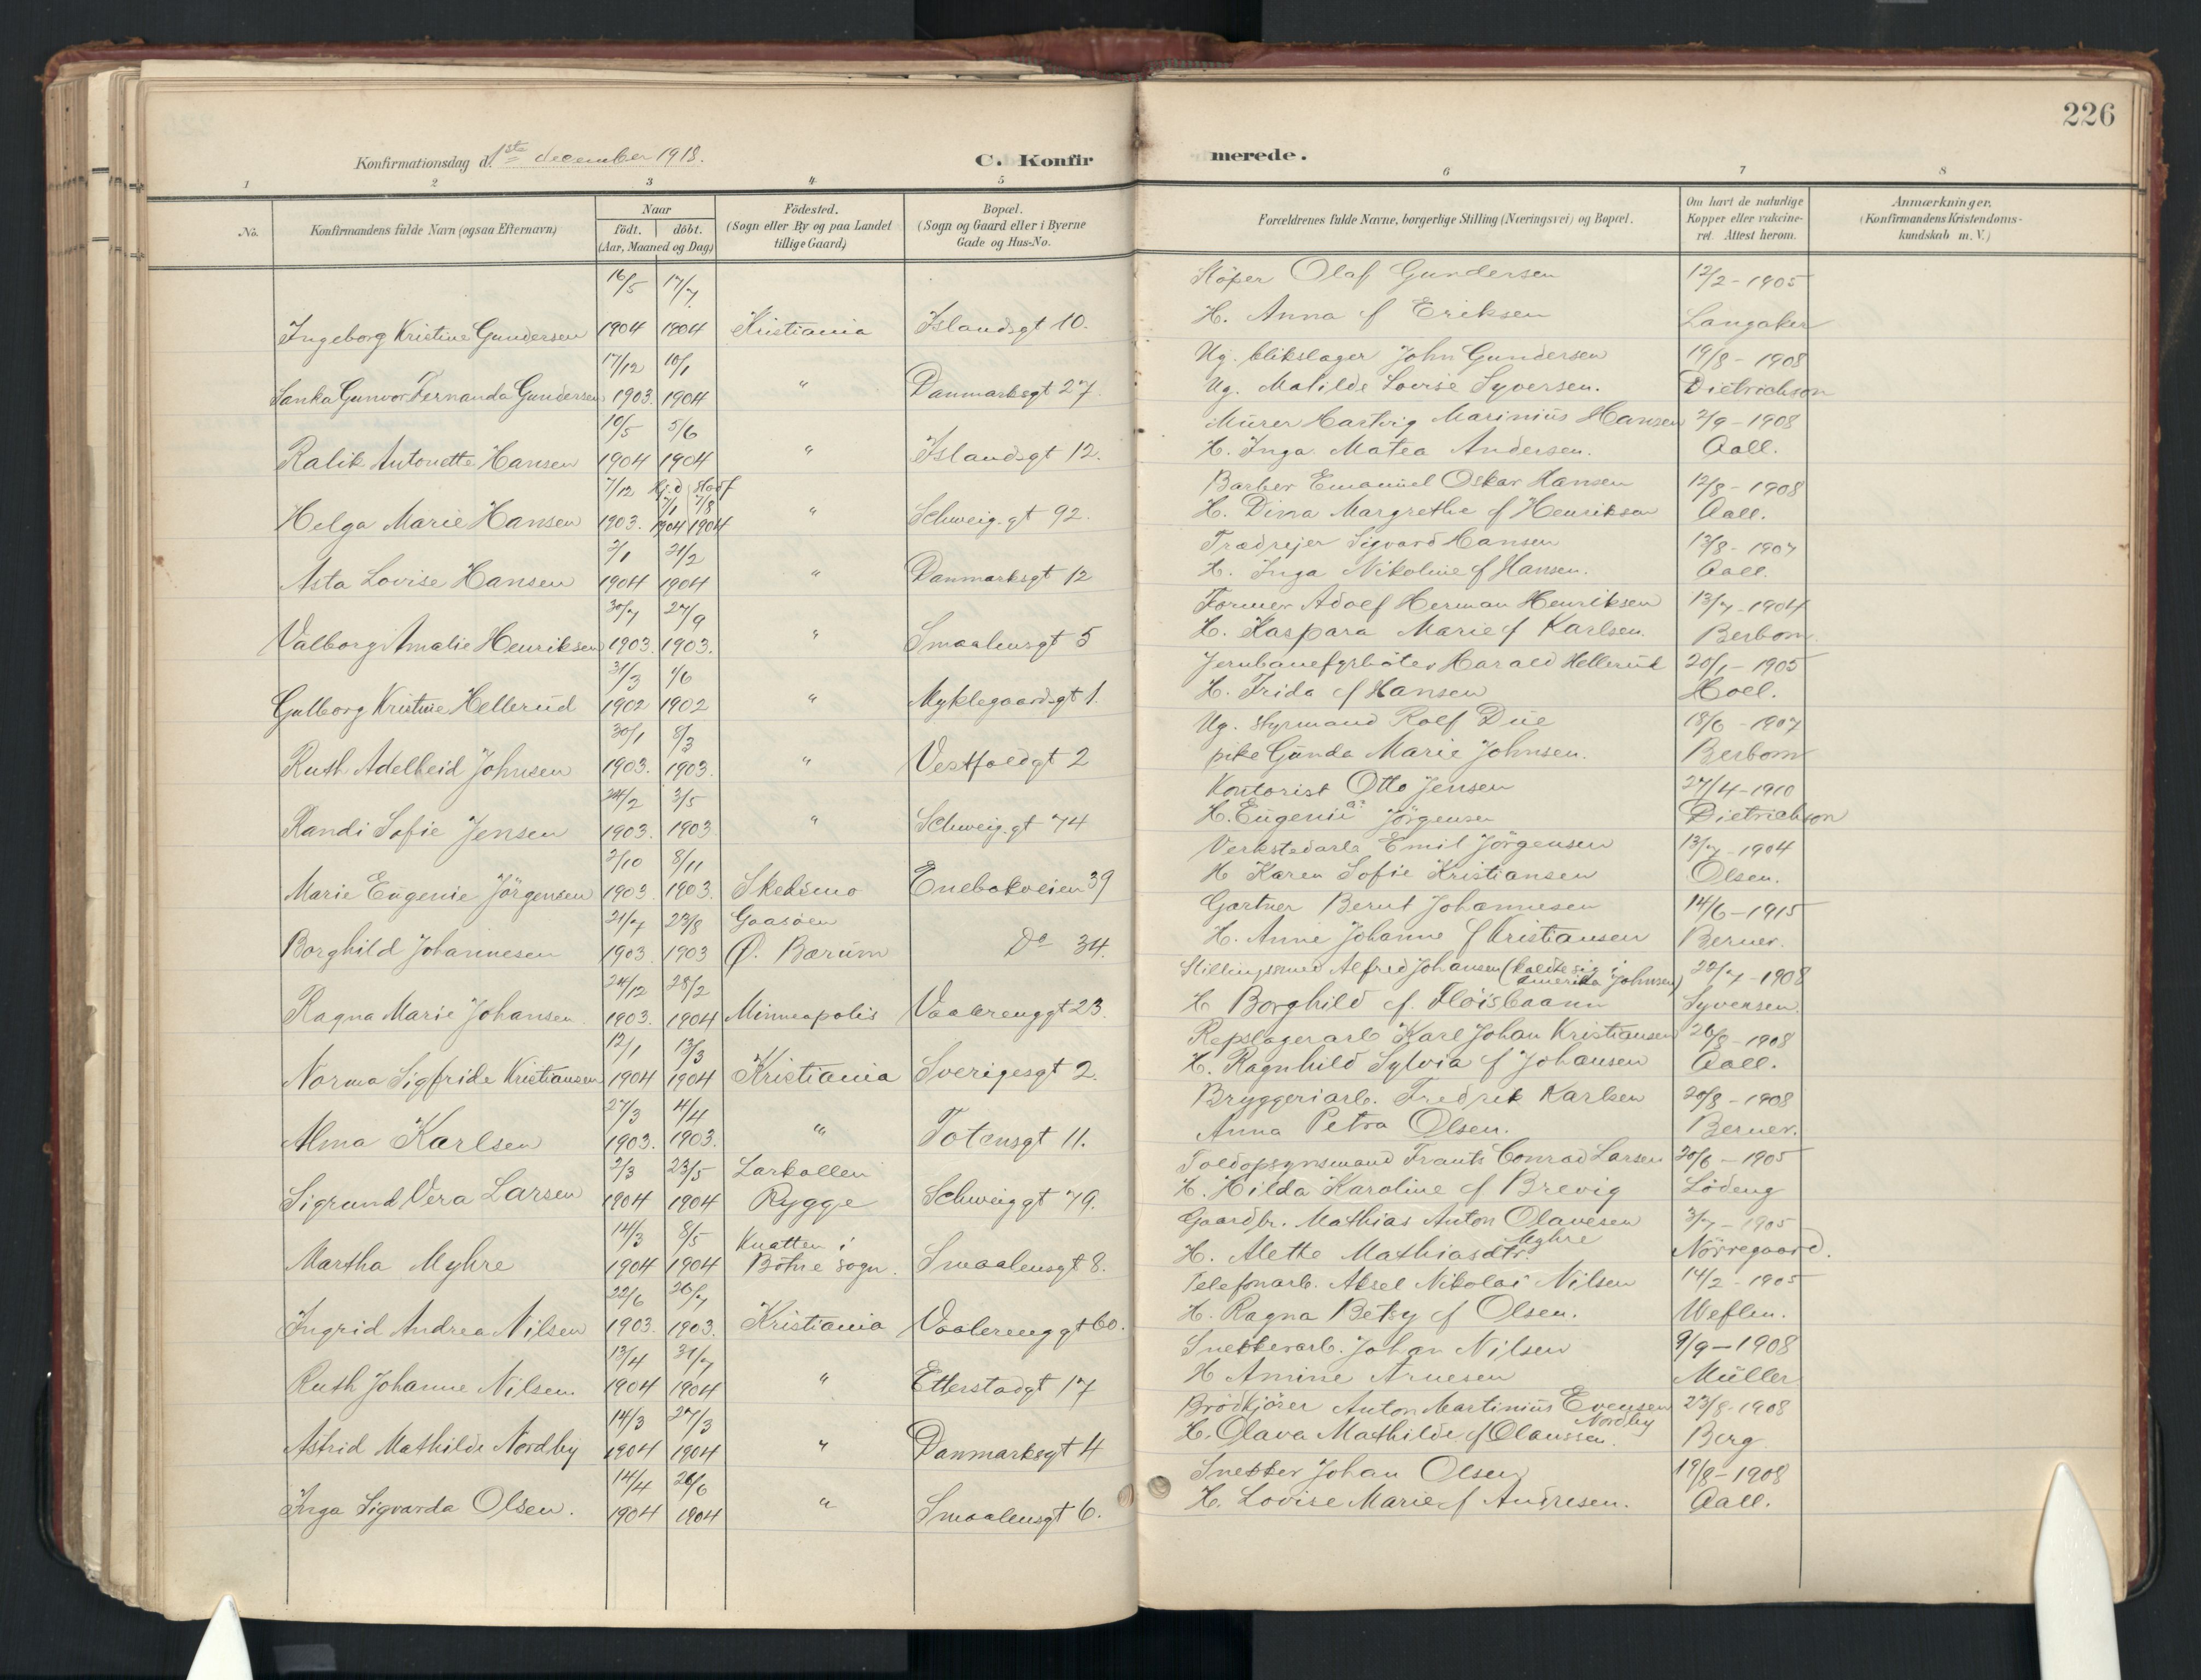 226
Konfirmationsdag d. 1ste december 1918.
C. Konfirmerede.
1 2 3 4 5 6 7 8
No.
Konfirmandens fulde Navn (ogsaa Efternavn)
Naar
födt. döbt.
(Aar, Maaned og Dag)
Födested.
(Sogn eller By og paa Landet
tillige Gaard)
Bopæl.
(Sogn og Gaard eller i Byerne
Gade og Hus-No.
Forældrenes fulde Navne, borgerlige Stilling (Næringsvei) og Bopæl.
Om havt de naturlige
Kopper eller vakcine-
ret. Attest herom.
Anmærkninger.
(Konfirmandens Kristendoms-
kundskab m. V.)
16/5 17/7 Olaf Gundersen 12/2 - 1905
Ingeborg Kristine Gundersen 1904 1904 Kristiania Islandsgt 10. H. Anna f Eriksen Langaker
17/12 10/1 Ug. blikslager John Gundersen 19/8 - 1908
Sanka Gunvor Fernanda Gundersen 1903. 1904 " Danmarksgt 27. Ug. Matilde Lovise Syversen. Dietrichson
10/5 5/6 Murer Hartvig Marinius Hansen 2/9 - 1908
Ralik Antonette Hansen 1904 1904 " Islandsgt 12. H. Inga Matea Andersen. Aall.
7/12 Hj.d 7/1 Stadf 7/8 Barber Emanuel Oskar Hansen 12/8 - 1908
Helga Marie Hansen 1903. 1904 1904 " Schweig.gt 92. H. Dina Margrethe f Henriksen Aall.
2/1 21/2 Trædrejer Sigvard Hansen 13/8 - 1907
Asta Lovise Hansen 1904 1904 " Danmarksgt 12 H. Inga Nikoline f Hansen. Aall.
30/7 27/9 Former Adolf Herman Henriksen 13/7 - 1904
Valborg Amalie Henriksen 1903. 1903. " Smaalensgt 5 H. Kaspara Marie f Karlsen. Berbom
31/3 1/6 Jernbanefyrböter Harald Hellerud 20/1 - 1905
Gulborg Kristine Hellerud 1902 1902 " Myklegaardsgt 1. H. Frida f Hansen Hoel.
30/1 8/3 Ug. styrmand Rolf Due 18/6 - 1907
Ruth Adelheid Johnsen 1903. 1903. " Vestfoldgt 2 pike Gunda Marie Johnsen. Berbom
24/2 3/5 Kontorist Otto Jensen 27/4 - 1910
Randi Sofie Jensen 1903. 1903 " Schweig.gt 74 H. Eugenie Jörgensen Dietrichson
2/10 8/11 Verkstedarb Emil Jörgensen 13/7 - 1904
Marie Eugenie Jörgensen 1903. 1903. Skedsmo Enebakveien 39 H Karen Sofie Kristiansen Olsen.
21/7 23/8 Gaasöen Gartner Bernt Johannesen 14/6 - 1915
Borghild Johannesen 1903. 1903 Ø. Bærum Do 34. H. Anne Johanne f Kristiansen Berner.
24/12 28/2 Stillingssmed Alfred Johansen (kaldte sig i Amerika Johnsen) 22/7 - 1908
Ragna Marie Johansen. 1903. 1904 Minneapolis Vaalerenggt 23. H Borghild f. Flöisbaann Syversen.
12/1 13/3 Repslagerarb Karl Johan Kristiansen 26/8 - 1908
Norma Sigfride Kristiansen 1904 1904 Kristiania Sverigesgt 2. H. Ragnhild Sylvia f Johansen Aall.
27/3 4/4 Bryggeriarb. Fredrik Karlsen 20/8 - 1908
Alma Karlsen 1903. 1903. " Totensgt 11. Anna Petra Olsen. Berner.
2/3 23/5 Larkollen Toldopsynsmand Frants Conrad Larsen 20/6 - 1905
Sigrund Vera Larsen 1904 1904 Rygge Schweiggt 79. H. Hilda Karoline f Brevig Lödeng
14/3 8/5 Knatten i Gaardbr. Mathias Anton Olavesen Myhre 3/7 - 1905
Martha Myhre 1904 1904 Bothne sogn. Smaalensgt 8. H. Alette Mathiasdtr. Nörregaard.
22/6 26/7 Telefonarb. Aksel Nikolai Nilsen 14/2 - 1905
Ingrid Andrea Nilsen 1903. 1903. Kristiania Vaalerenggt 60. H. Ragna Betsy f Olsen. Weflen.
13/4 31/7 Snekkerarb. Johan Nilsen 9/9 - 1908
Ruth Johanne Nilsen 1904 1904 " Etterstadgt 17 H Amine Arnesen Müller
14/3 27/3 Brödkjörer Anton Martinius Evensen Nordby 23/8 - 1908
Astrid Mathilde Nordby 1904 1904 " Danmarksgt 4 H. Olava Mathilde f Olaussen. Berg
14/4 26/6 Snekker Johan Olsen 19/8 - 1908
Inga Sigvarda Olsen. 1904 1904 " Smaalensgt 6. H. Lovise Marie f Andresen. Aall.